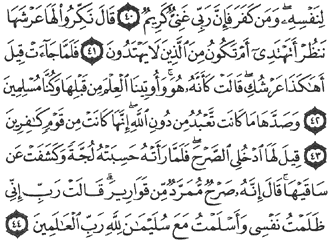 لِنَفْسِهِۦ وَمَن كَفَرَ فَإِنَّ رَبِّى غَنِىٌّ كَرِيمٌ ٤٠ قَالَ نَكِّرُوا۟ لَهَا عَرْشَهَا
نَنظُرْ أَتَهْتَدِىٓ أَمْ تَكُونُ مِنَ ٱلَّذِينَ لَا يَهْتَدُونَ ٤١ فَلَمَّا جَآءَتْ قِيلَ
أَهَٰكَذَا عَرْشُكِ قَالَتْ كَأَنَّهُۥ هُوَ وَأُوتِينَا ٱلْعِلْمَ مِن قَبْلِهَا وَكُنَّا مُسْلِمِينَ
٤٢ وَصَدَّهَا مَا كَانَت تَّعْبُدُ مِن دُونِ ٱللَّهِ إِنَّهَا كَانَتْ مِن قَوْمٍ كَٰفِرِينَ
٤٣ قِيلَ لَهَا ٱدْخُلِى ٱلصَّرْحَ فَلَمَّا رَأَتْهُ حَسِبَتْهُ لُجَّةً وَكَشَفَتْ عَن
سَاقَيْهَا قَالَ إِنَّهُۥ صَرْحٌ مُّمَرَّدٌ مِّن قَوَارِيرَ قَالَتْ رَبِّ إِنِّى
ظَلَمْتُ نَفْسِى وَأَسْلَمْتُ مَعَ سُلَيْمَٰنَ لِلَّهِ رَبِّ ٱلْعَٰلَمِينَ ٤٤